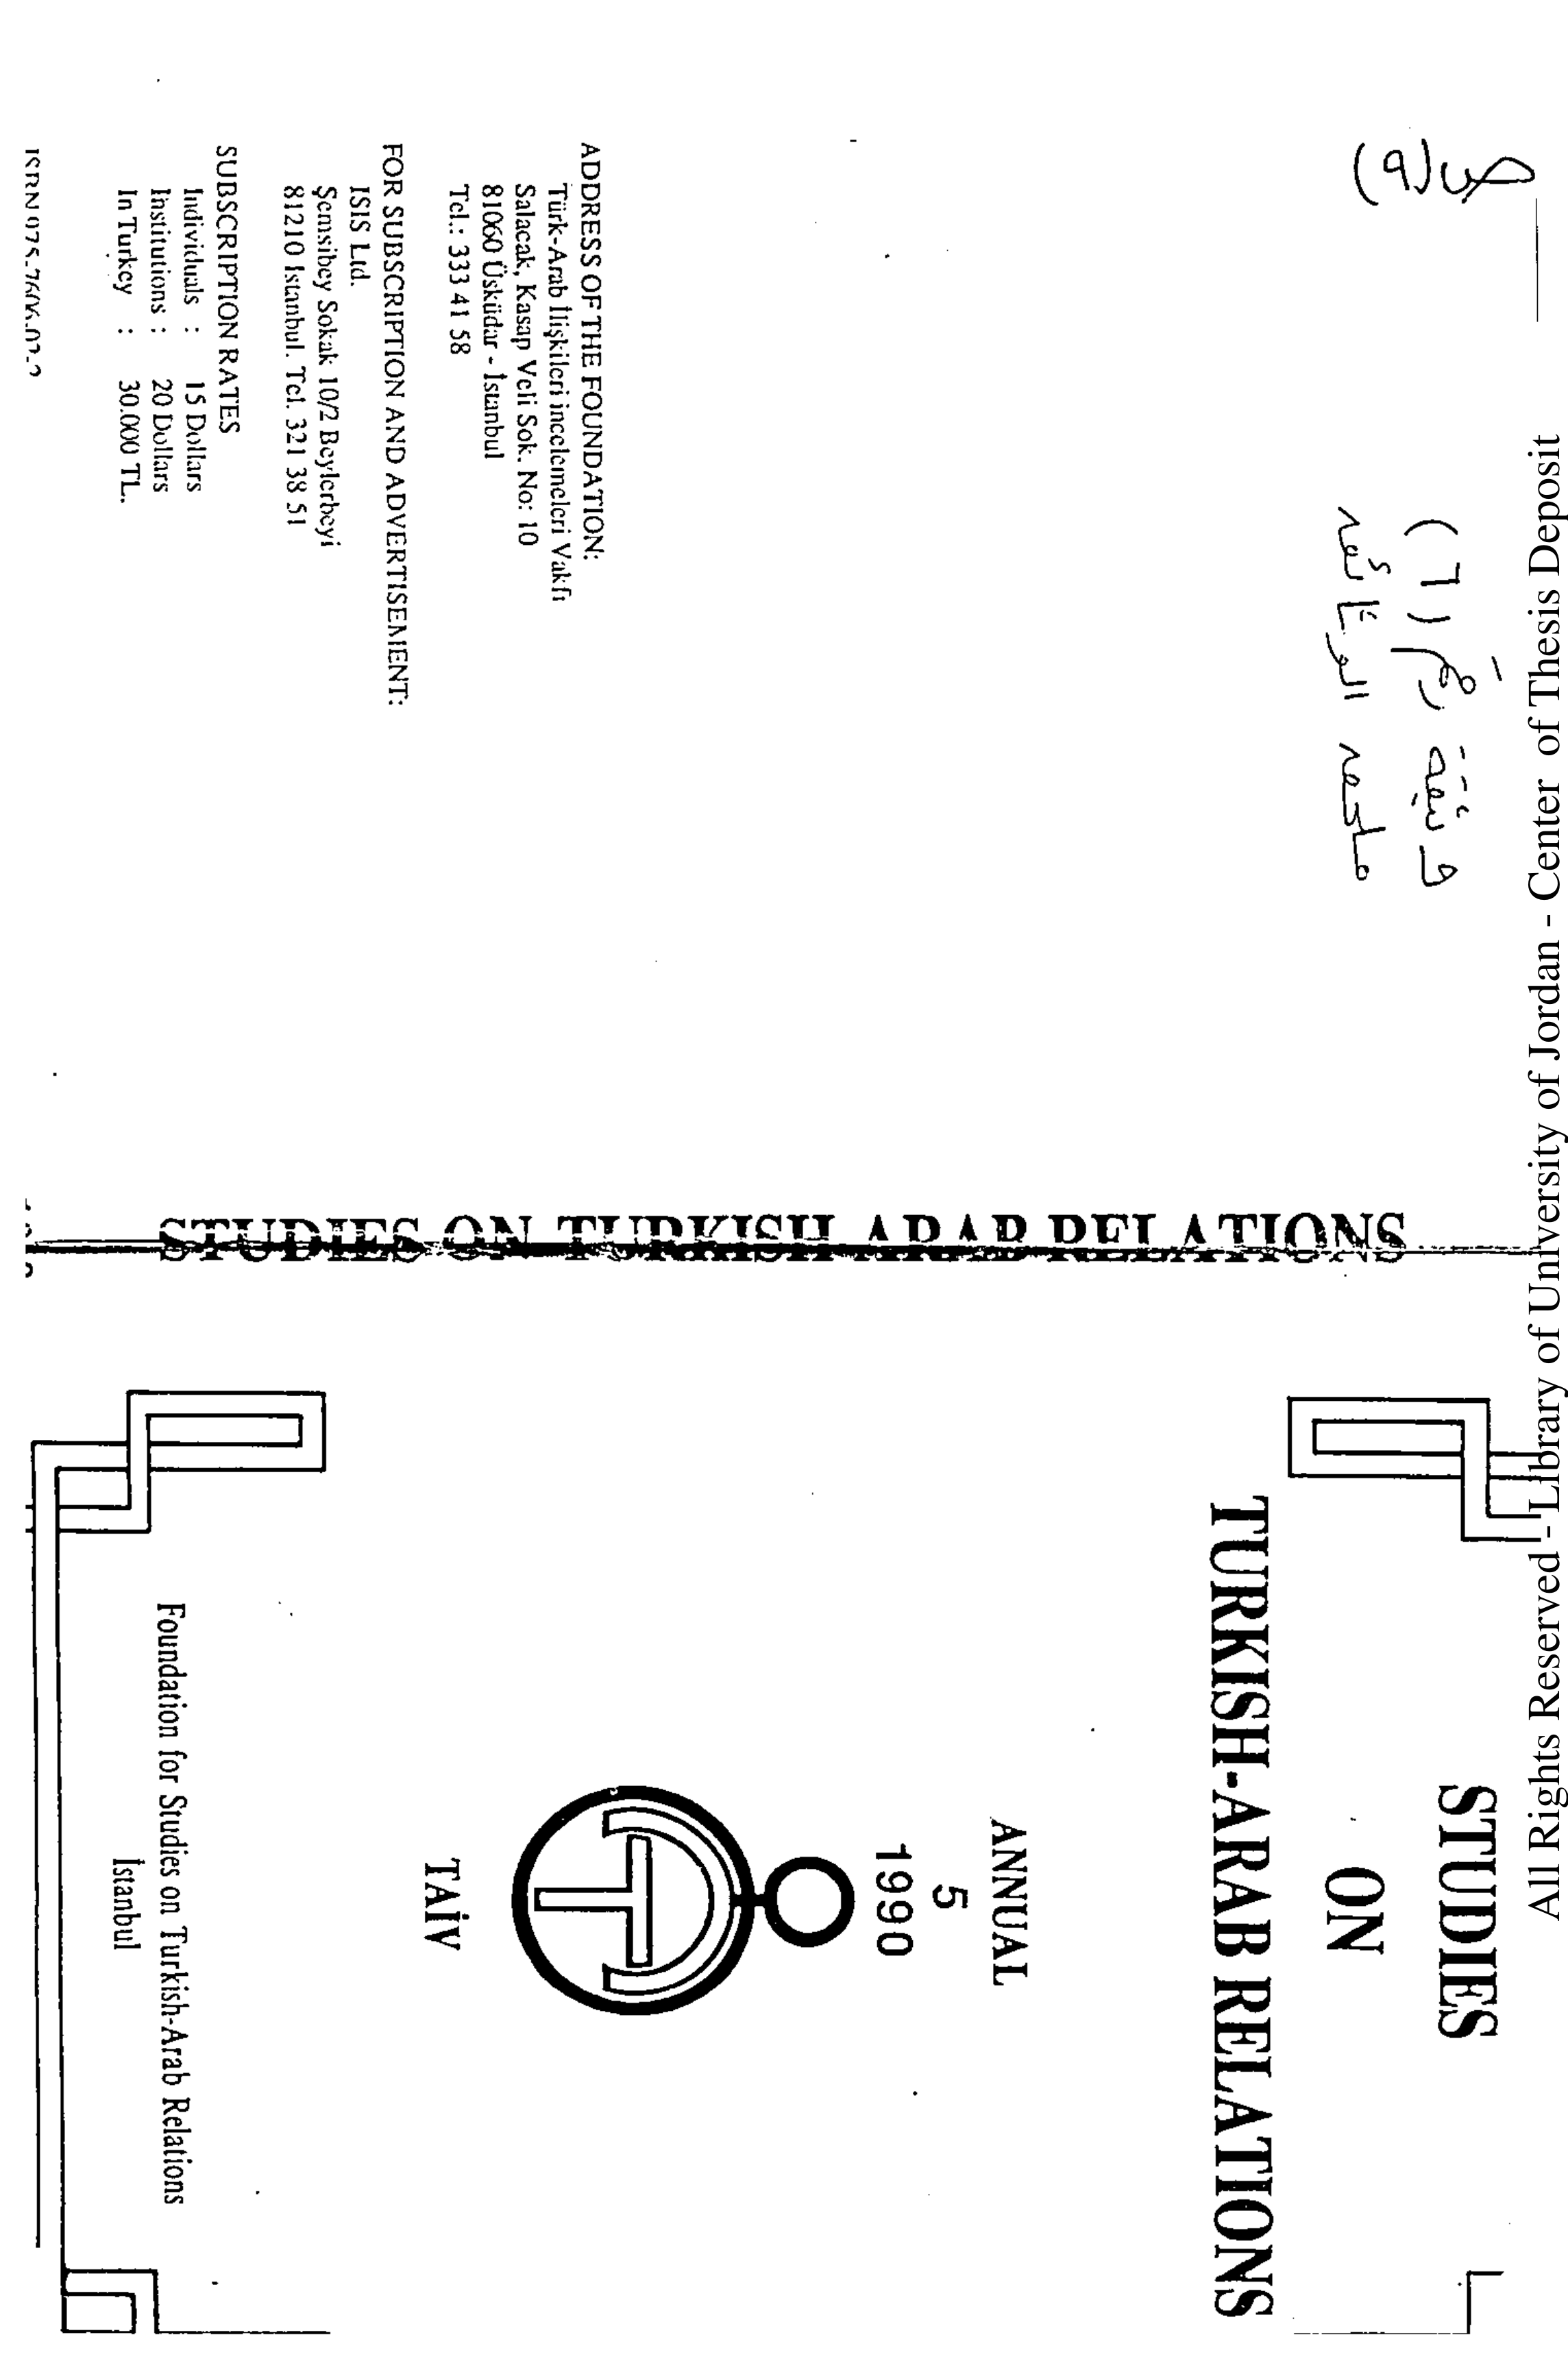 ص (٩)
وثيقة رقم (٦)
ملحق الوثائق
ADDRESS OF THE FOUNDATION:
Türk-Arab İlişkileri incelemeleri Vakfı
Salacak, Kasap Veli Sok. No: 10
81060 Üsküdar - İstanbul
Tel.: 333 41 58
FOR SUBSCRIPTION AND ADVERTISEMENT:
ISIS Ltd.
Şemsibey Sokak 10/2 Beylerbeyi
81210 İstanbul. Tel. 321 38 51
SUBSCRIPTION RATES
Individuals : 15 Dollars
Institutions : 20 Dollars
In Turkey : 30.000 TL.
STUDIES ON TURKISH ARAB RELATIONS
STUDIES
ON
TURKISH-ARAB RELATIONS
ANNUAL
5
1990
TAİV
Foundation for Studies on Turkish-Arab Relations
İstanbul
All Rights Reserved - Library of University of Jordan - Center of Thesis Deposit